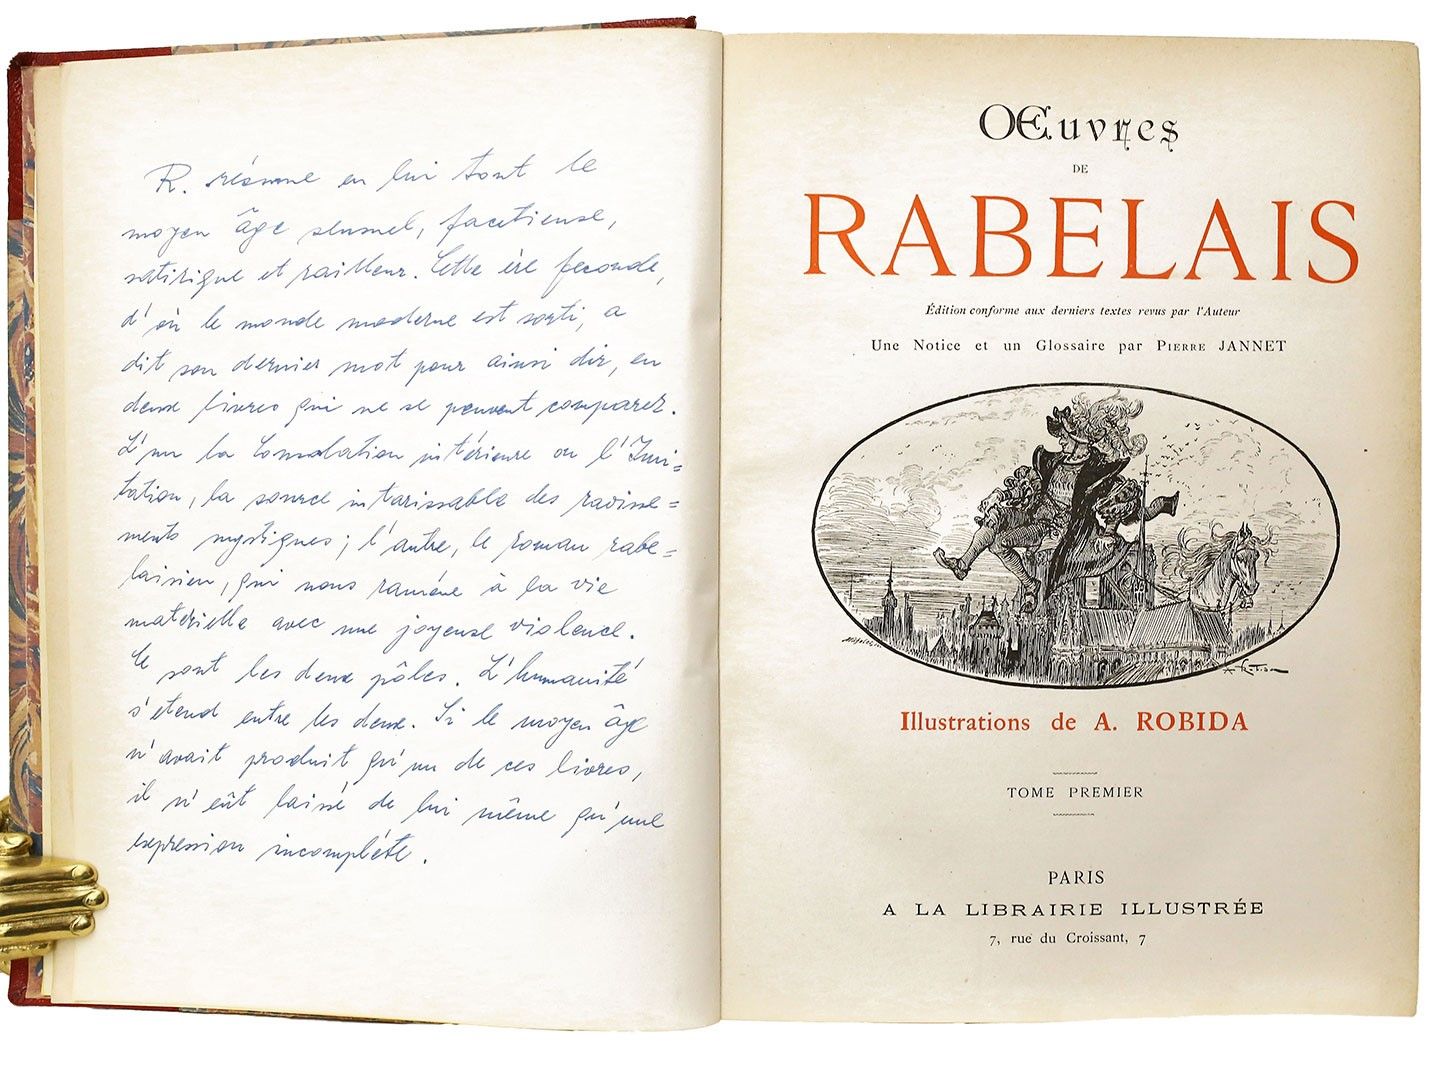 R. résume en lui tout le
moyen âge sensuel, facetieuse,
satirique et railleur. Cette ère feconde,
d'où le monde moderne est sorti, a
dit son dernier mot pour ainsi dir, en
deux livres qui ne se peuvent comparer.
L'un la Consolation intérieure ou l'Imi-
tation, la source intarissable des ravisse=
ments mystiques; l'autre, le roman rabe=
laisien, qui nous ramène à la vie
matérielle avec une joyeuse violence.
Ce sont les deux pôles. L'humanité
s'etend entre les deux. Si le moyen âge
n'avait produit qu'un de ces livres,
il n'eût laissé de lui même qu'une
expression incomplète.
Œuvres
DE
RABELAIS
Édition conforme aux derniers textes revus par l'Auteur
Une Notice et un Glossaire par PIERRE JANNET
A. Robida
Illustrations de A. ROBIDA
TOME PREMIER
PARIS
A LA LIBRAIRIE ILLUSTRÉE
7, rue du Croissant, 7